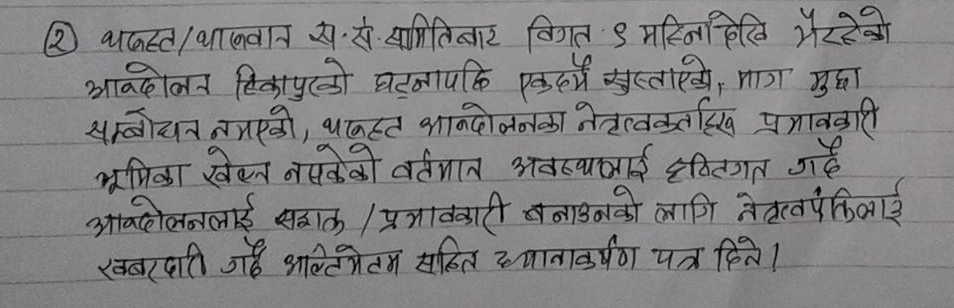 ② थरुहट/थारुवान स.सं.समितिबाट विगत ९ महिनादेखि भैरहेको
आन्दोलन टिकापुरको घटनापछि एकदमै सुस्ताएको, माग मुद्दा
सम्बोधन नभएको, थरुहट आन्दोलनका नेतृत्वकर्ताहरु प्रभावकारी
भूमिका खेल्न नसकेको वर्तमान अवस्थालाई दृष्टिगत गर्दै
आन्दोलनलाई सशक्त/प्रभावकारी बनाउनको लागि नेतृत्वपंक्तिलाई
खबरदारी गर्दै अल्टिमेटम सहित ध्यानाकर्षण पत्र दिने।